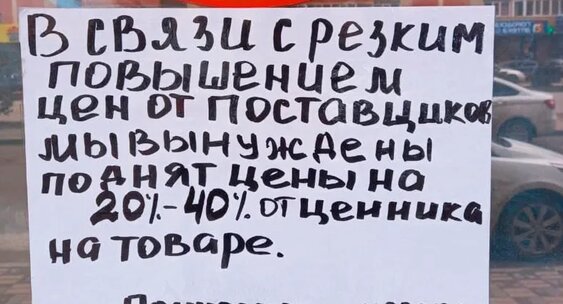 В СВЯЗИ С РЕЗКИМ
ПОВЫШЕНИЕМ
ЦЕН ОТ ПОСТАВЩИКОВ
МЫ ВЫНУЖДЕНЫ
ПОДНЯТ ЦЕНЫ НА
20%-40% ОТ ЦЕННИКА
НА ТОВАРЕ.